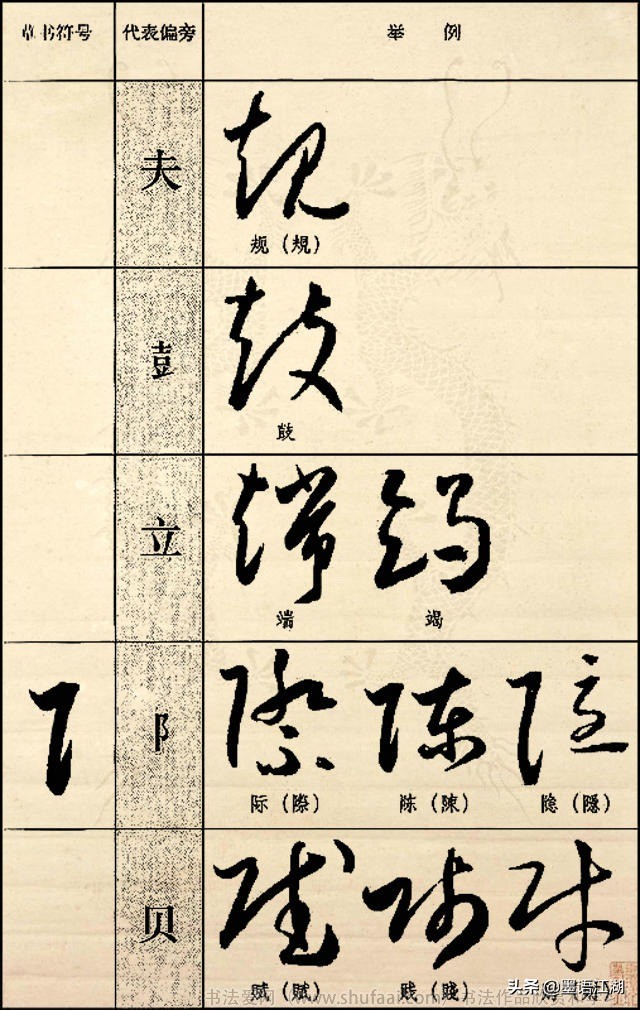 草书符号 代表偏旁 举 例
夫
规（規）
壴
鼓
立
端 竭
阝
际（際） 陈（陳） 隐（隱）
贝
赋（賦） 贱（賤）
书法爱 www.shufaai.com 书法作品欣赏
头条 @墨语江湖